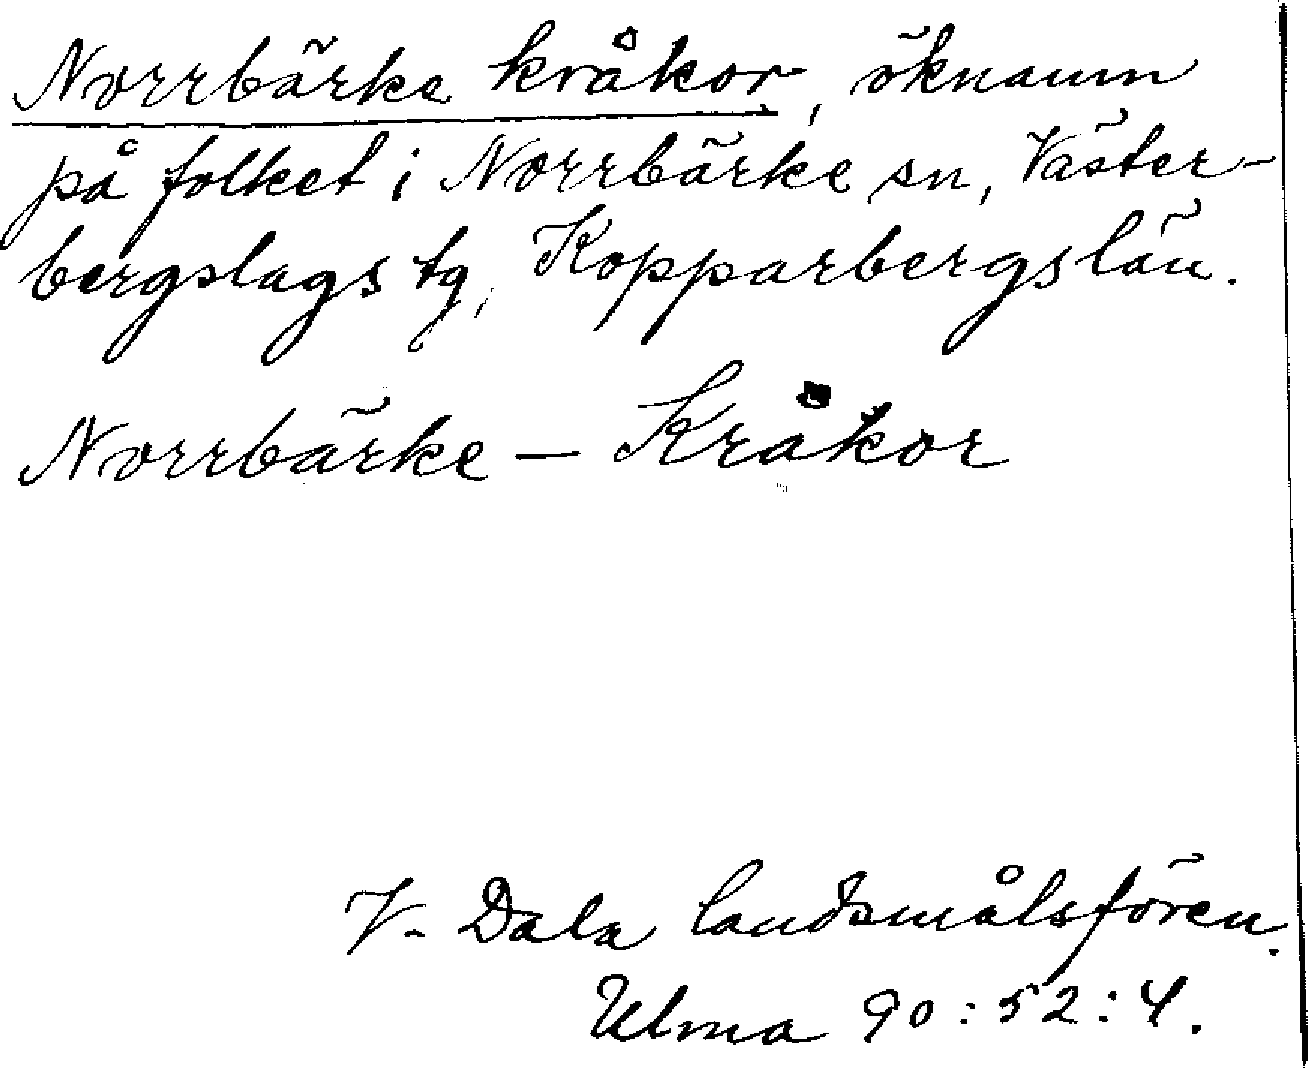 Norrbärke kråkor, öknamn
på folket i Norrbärke sn, Väster-
bergslags tg, Kopparbergs län.
Norrbärke – Kråkor
V. Dala landsmålsfören.
Ulma 90:52:4.